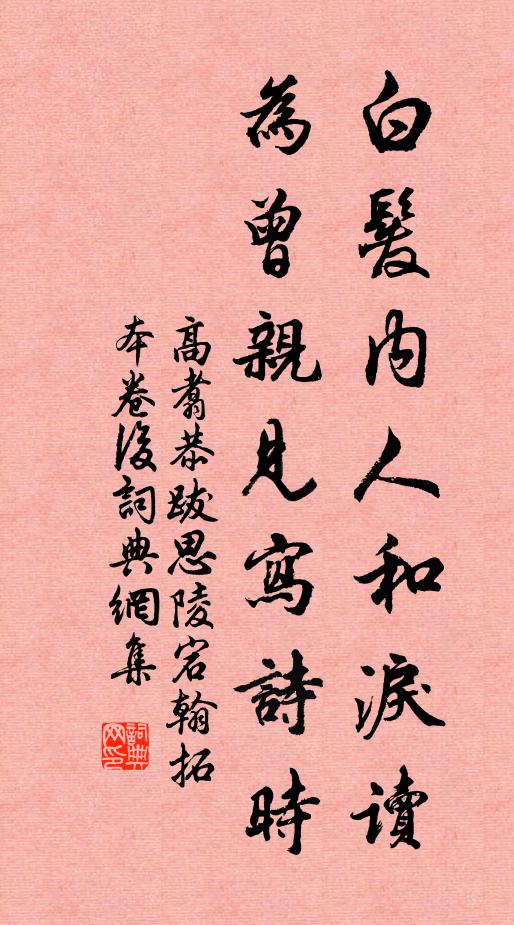 白髮內人和淚讀
為曾親見寫詩時
高翥恭跋思陵宸翰拓
本卷後詞典網集
詞典网印